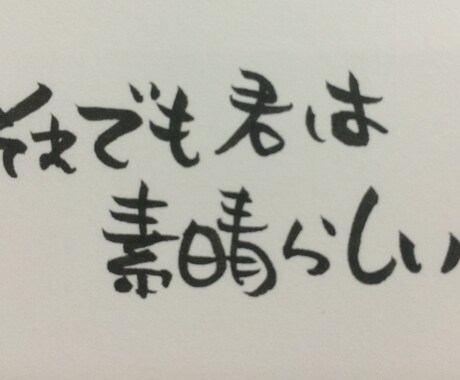 それでも君は
素晴らしい